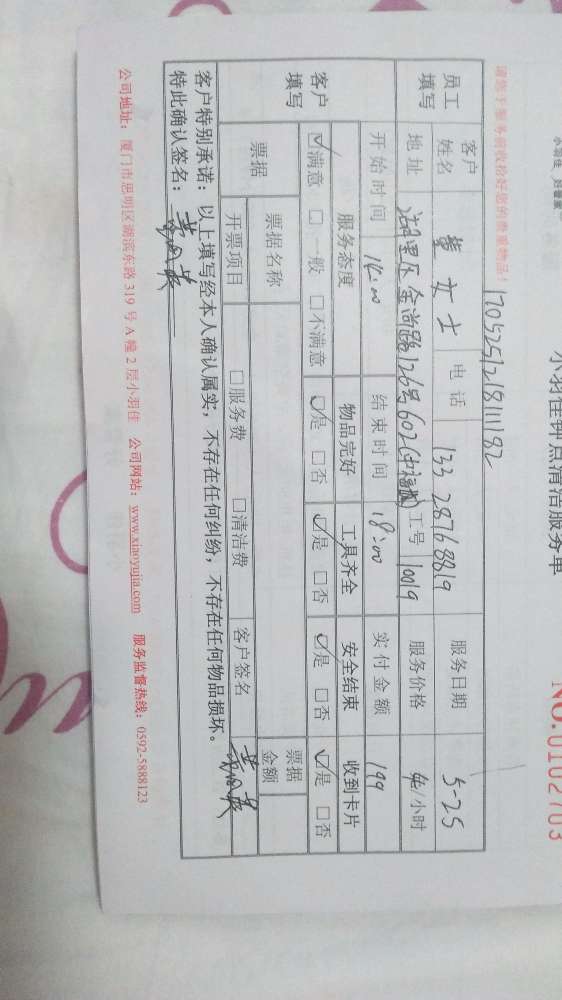 小羽佳钟点清洁服务单
NO.0102703
请您于服务前收拾好您的贵重物品！
170525121811182
员工填写
客户姓名 董女士 电话 13328768819 服务日期 5-25
地址 湖里区金尚路126号602 工号 10019 服务价格 /小时
开始时间 14:00 结束时间 18:00 实付金额 199
客户填写
服务态度 物品完好 工具齐全 安全结束 收到卡片
☑满意 □一般 □不满意 ☑是 □否 ☑是 □否 ☑是 □否 ☑是 □否
票据 票据名称 票据金额
开票项目 □服务费 □清洁费 客户签名
客户特别承诺：以上填写经本人确认属实，不存在任何纠纷，不存在任何物品损坏。
特此确认签名：
公司地址：厦门市思明区湖滨东路319号A幢2层小羽佳 公司网站：www.xiaoyujia.com 服务监督热线：0592-5888123